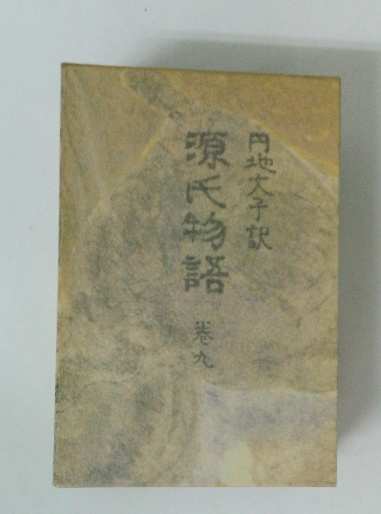 円地文子訳
源氏物語
巻九